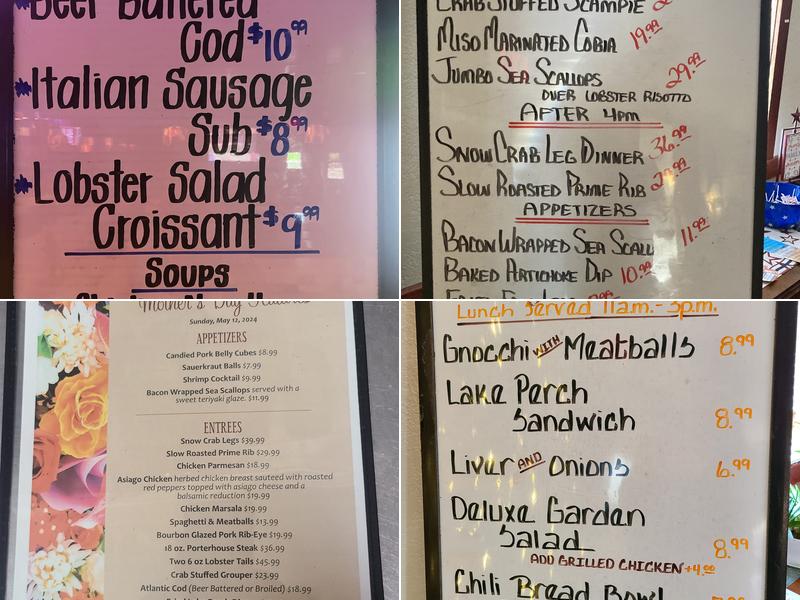 Beer Battered
Cod $10.99
*Italian Sausage
Sub $8.99
*Lobster Salad
Croissant $9.99
Soups
CRAB STUFFED SCAMPIE
MISO MARINATED COBIA 19.99
JUMBO SEA SCALLOPS 29.99
OVER LOBSTER RISOTTO
AFTER 4PM
SNOW CRAB LEG DINNER 36.99
SLOW ROASTED PRIME RIB
APPETIZERS
BACON WRAPPED SEA SCALL 11.99
BAKED ARTICHOKE DIP 10.99
Mother's Day
Sunday, May 12, 2024
APPETIZERS
Candied Pork Belly Cubes $8.99
Sauerkraut Balls $7.99
Shrimp Cocktail $9.99
Bacon Wrapped Sea Scallops served with a
sweet teriyaki glaze. $11.99
ENTREES
Snow Crab Legs $39.99
Slow Roasted Prime Rib $29.99
Chicken Parmesan $18.99
Asiago Chicken herbed chicken breast sauteed with roasted
red peppers topped with asiago cheese and a
balsamic reduction $19.99
Chicken Marsala $19.99
Spaghetti & Meatballs $13.99
Bourbon Glazed Pork Rib-Eye $19.99
18 oz. Porterhouse Steak $36.99
Two 6 oz Lobster Tails $45.99
Crab Stuffed Grouper $23.99
Atlantic Cod (Beer Battered or Broiled) $18.99
Lunch Served 11a.m.- 3p.m.
Gnocchi WITH Meatballs 8.99
Lake Perch
Sandwich 8.99
Liver AND Onions 6.99
Deluxe Garden
Salad 8.99
ADD GRILLED CHICKEN +4.00
Chili Bread Bowl